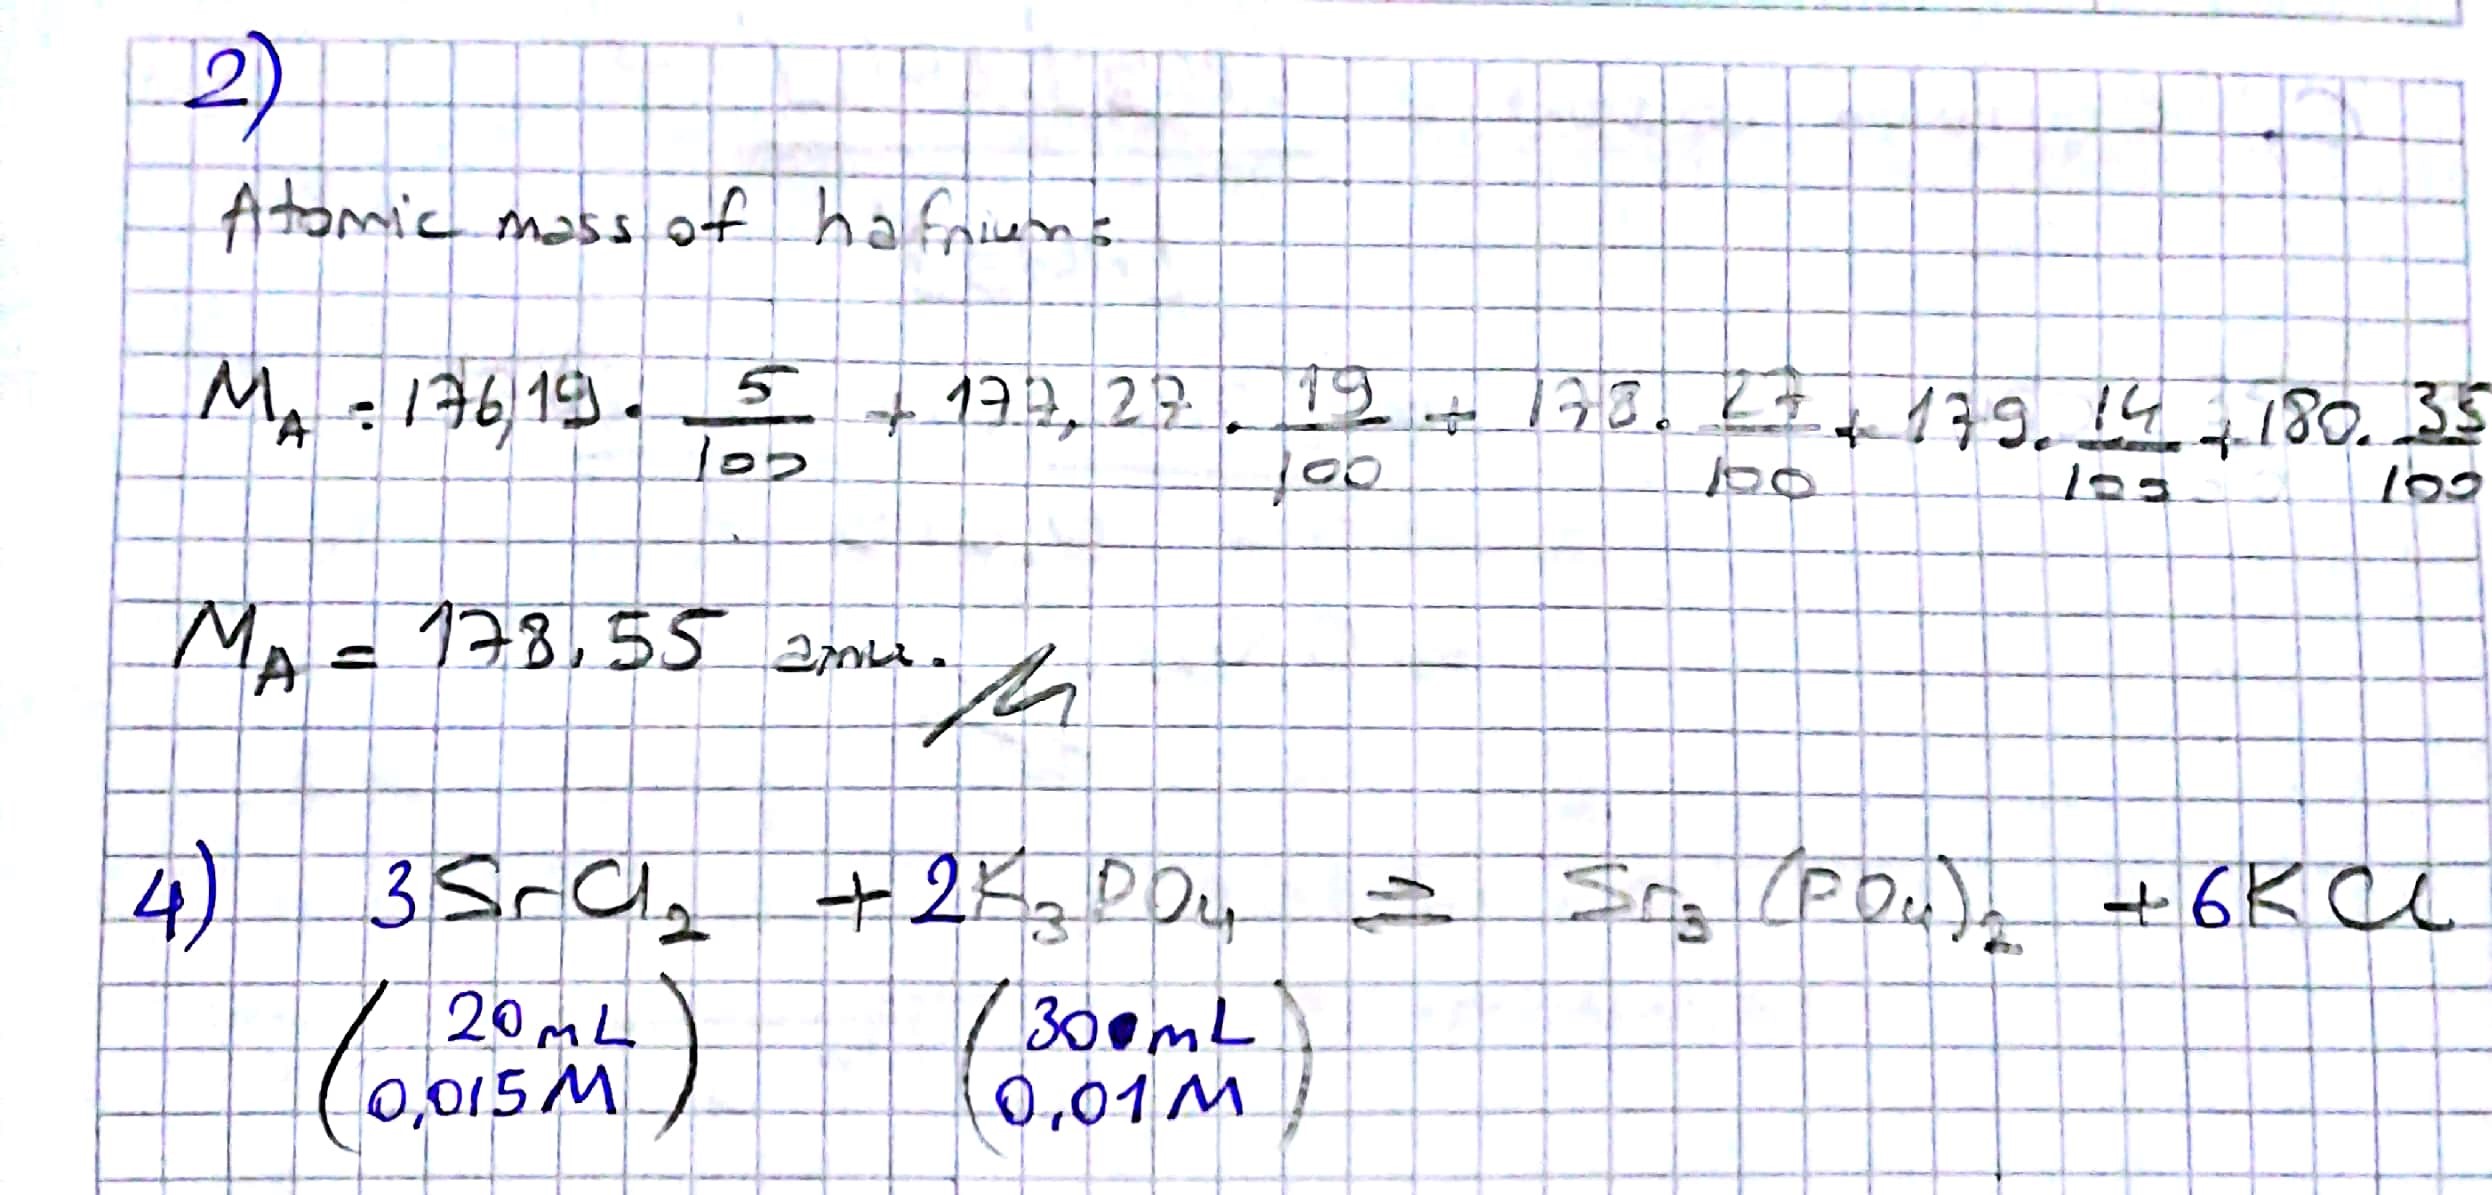 2)
Atomic mass of hafnium:
M_A = 176,19 . 5/100 + 177,27 . 19/100 + 178 . 27/100 + 179 . 14/100 + 180 . 35/100
M_A = 178,55 amu.
4) 3SrCl₂ + 2K₃PO₄ ⇌ Sr₃(PO₄)₂ + 6KCl
(20 mL 0,015 M) (30 mL 0,01 M)